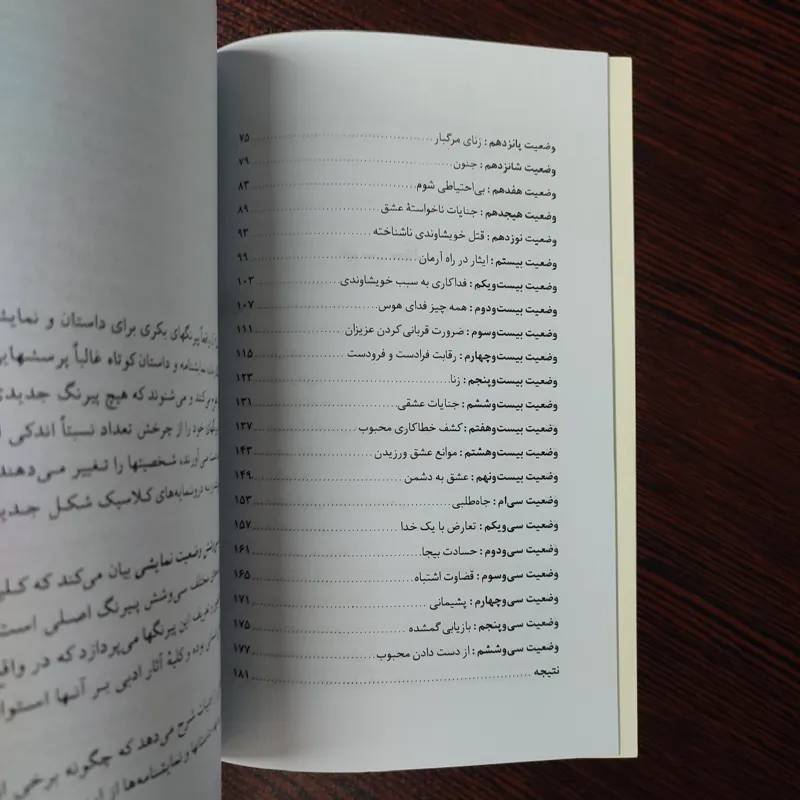 وضعیت پانزدهم : زنای مرگبار ........ ۷۵
وضعیت شانزدهم : جنون ........ ۷۹
وضعیت هفدهم : بی‌احتیاطی شوم ........ ۸۳
وضعیت هیجدهم : جنایات ناخواستهٔ عشق ........ ۸۹
وضعیت نوزدهم : قتل خویشاوندی ناشناخته ........ ۹۳
وضعیت بیستم : ایثار در راه آرمان ........ ۹۹
وضعیت بیست‌ویکم : فداکاری به سبب خویشاوندی ........ ۱۰۳
وضعیت بیست‌ودوم : همه چیز فدای هوس ........ ۱۰۷
وضعیت بیست‌وسوم : ضرورت قربانی کردن عزیزان ........ ۱۱۱
وضعیت بیست‌وچهارم : رقابت فرادست و فرودست ........ ۱۱۵
وضعیت بیست‌وپنجم : زنا ........ ۱۲۳
وضعیت بیست‌وششم : جنایات عشقی ........ ۱۳۱
وضعیت بیست‌وهفتم : کشف خطاکاری محبوب ........ ۱۳۷
وضعیت بیست‌وهشتم : موانع عشق ورزیدن ........ ۱۴۳
وضعیت بیست‌ونهم : عشق به دشمن ........ ۱۴۹
وضعیت سی‌ام : جاه‌طلبی ........ ۱۵۳
وضعیت سی‌ویکم : تعارض با یک خدا ........ ۱۵۷
وضعیت سی‌ودوم : حسادت بیجا ........ ۱۶۱
وضعیت سی‌وسوم : قضاوت اشتباه ........ ۱۶۵
وضعیت سی‌وچهارم : پشیمانی ........ ۱۷۱
وضعیت سی‌وپنجم : بازیابی گمشده ........ ۱۷۵
وضعیت سی‌وششم : از دست دادن محبوب ........ ۱۷۷
نتیجه ........ ۱۸۱
پیرنگهای بکری برای داستان و نمایش
نمایشنامه و داستان کوتاه غالباً پرسشهایی
می‌کند و می‌شنوند که هیچ پیرنگ جدیدی
خود را از چرخش تعداد نسبتاً اندکی
می‌آورند، شخصیتها را تغییر می‌دهند
درونمایه‌های کلاسیک شکل جدید
وضعیت نمایشی بیان می‌کند که کلی
مختلف سی‌وشش پیرنگ اصلی است
تعریف این پیرنگها می‌پردازد که در واقع
بوده و کلیهٔ آثار ادبی بر آنها استوار
شرح می‌دهد که چگونه برخی از
داستانها و نمایشنامه‌ها از این